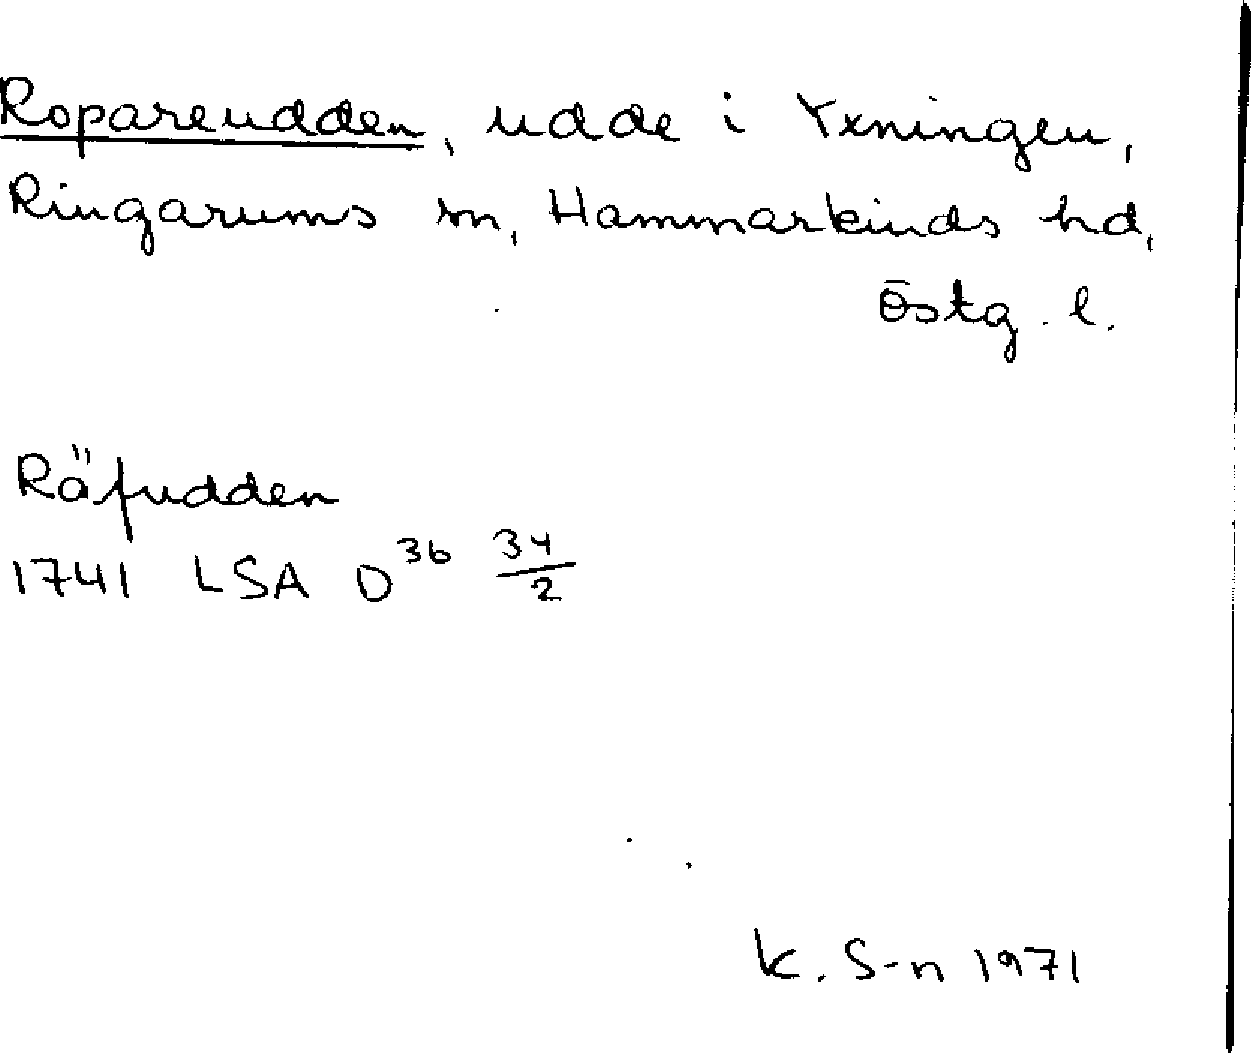 Ropareudden, udde i Yxningen,
Ringarums sn, Hammarkinds hd,
Östg. l.
Räfudden
1741 LSA D³⁶ 34/2
K. S-n 1971